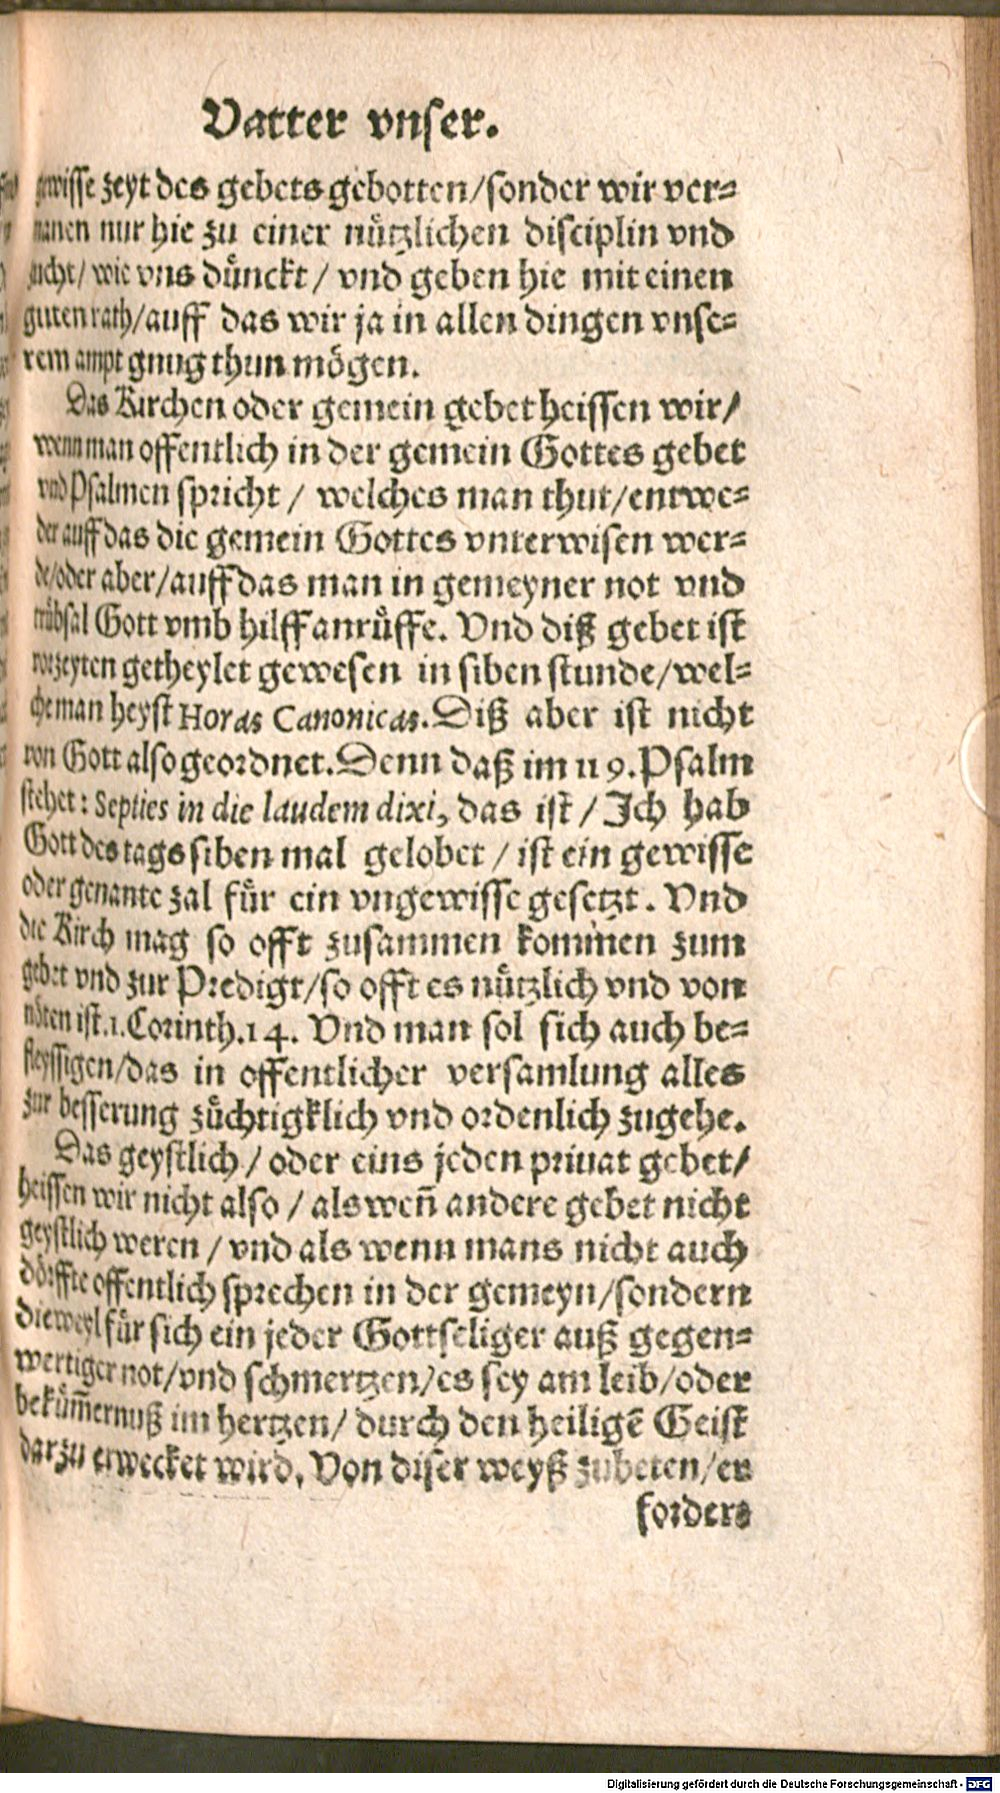 Vatter vnser.
gewisse zeyt des gebets gebotten/sonder wir ver=
manen nur hie zu einer nützlichen disciplin vnd
zucht/ wie vns dünckt / vnd geben hie mit einen
guten rath/auff das wir ja in allen dingen vnse=
rem ampt gnug thun mögen.
Das Kirchen oder gemein gebet heissen wir/
wenn man offentlich in der gemein Gottes gebet
vnd Psalmen spricht / welches man thut/entwe=
der auff das die gemein Gottes vnterwisen wer=
de/oder aber/auff das man in gemeyner not vnd
trübsal Gott vmb hilff anrüffe. Vnd diß gebet ist
vorzeyten getheylet gewesen in siben stunde/wel=
che man heyst Horas Canonicas. Diß aber ist nicht
von Gott also geordnet. Denn daß im 119. Psalm
stehet: Septies in die laudem dixi, das ist / Ich hab
Gott des tags siben mal gelobet / ist ein gewisse
oder genante zal für ein vngewisse gesetzt. Vnd
die Kirch mag so offt zusammen kommen zum
gebet vnd zur Predigt/so offt es nützlich vnd von
nöten ist.1.Corinth.14. Vnd man sol sich auch be=
fleyssigen/das in offentlicher versamlung alles
zur besserung züchtigklich vnd ordenlich zugehe.
Das geystlich / oder eins jeden priuat gebet/
heissen wir nicht also / als wen̄ andere gebet nicht
geystlich weren / vnd als wenn mans nicht auch
dörffte offentlich sprechen in der gemeyn/sondern
dieweyl für sich ein jeder Gottseliger auß gegen=
wertiger not/vnd schmertzen/es sey am leib/oder
bekümm̄ernuß im hertzen/ durch den heiligē Geist
darzu erwecket wird. Von diser weyß zubeten/er
forders